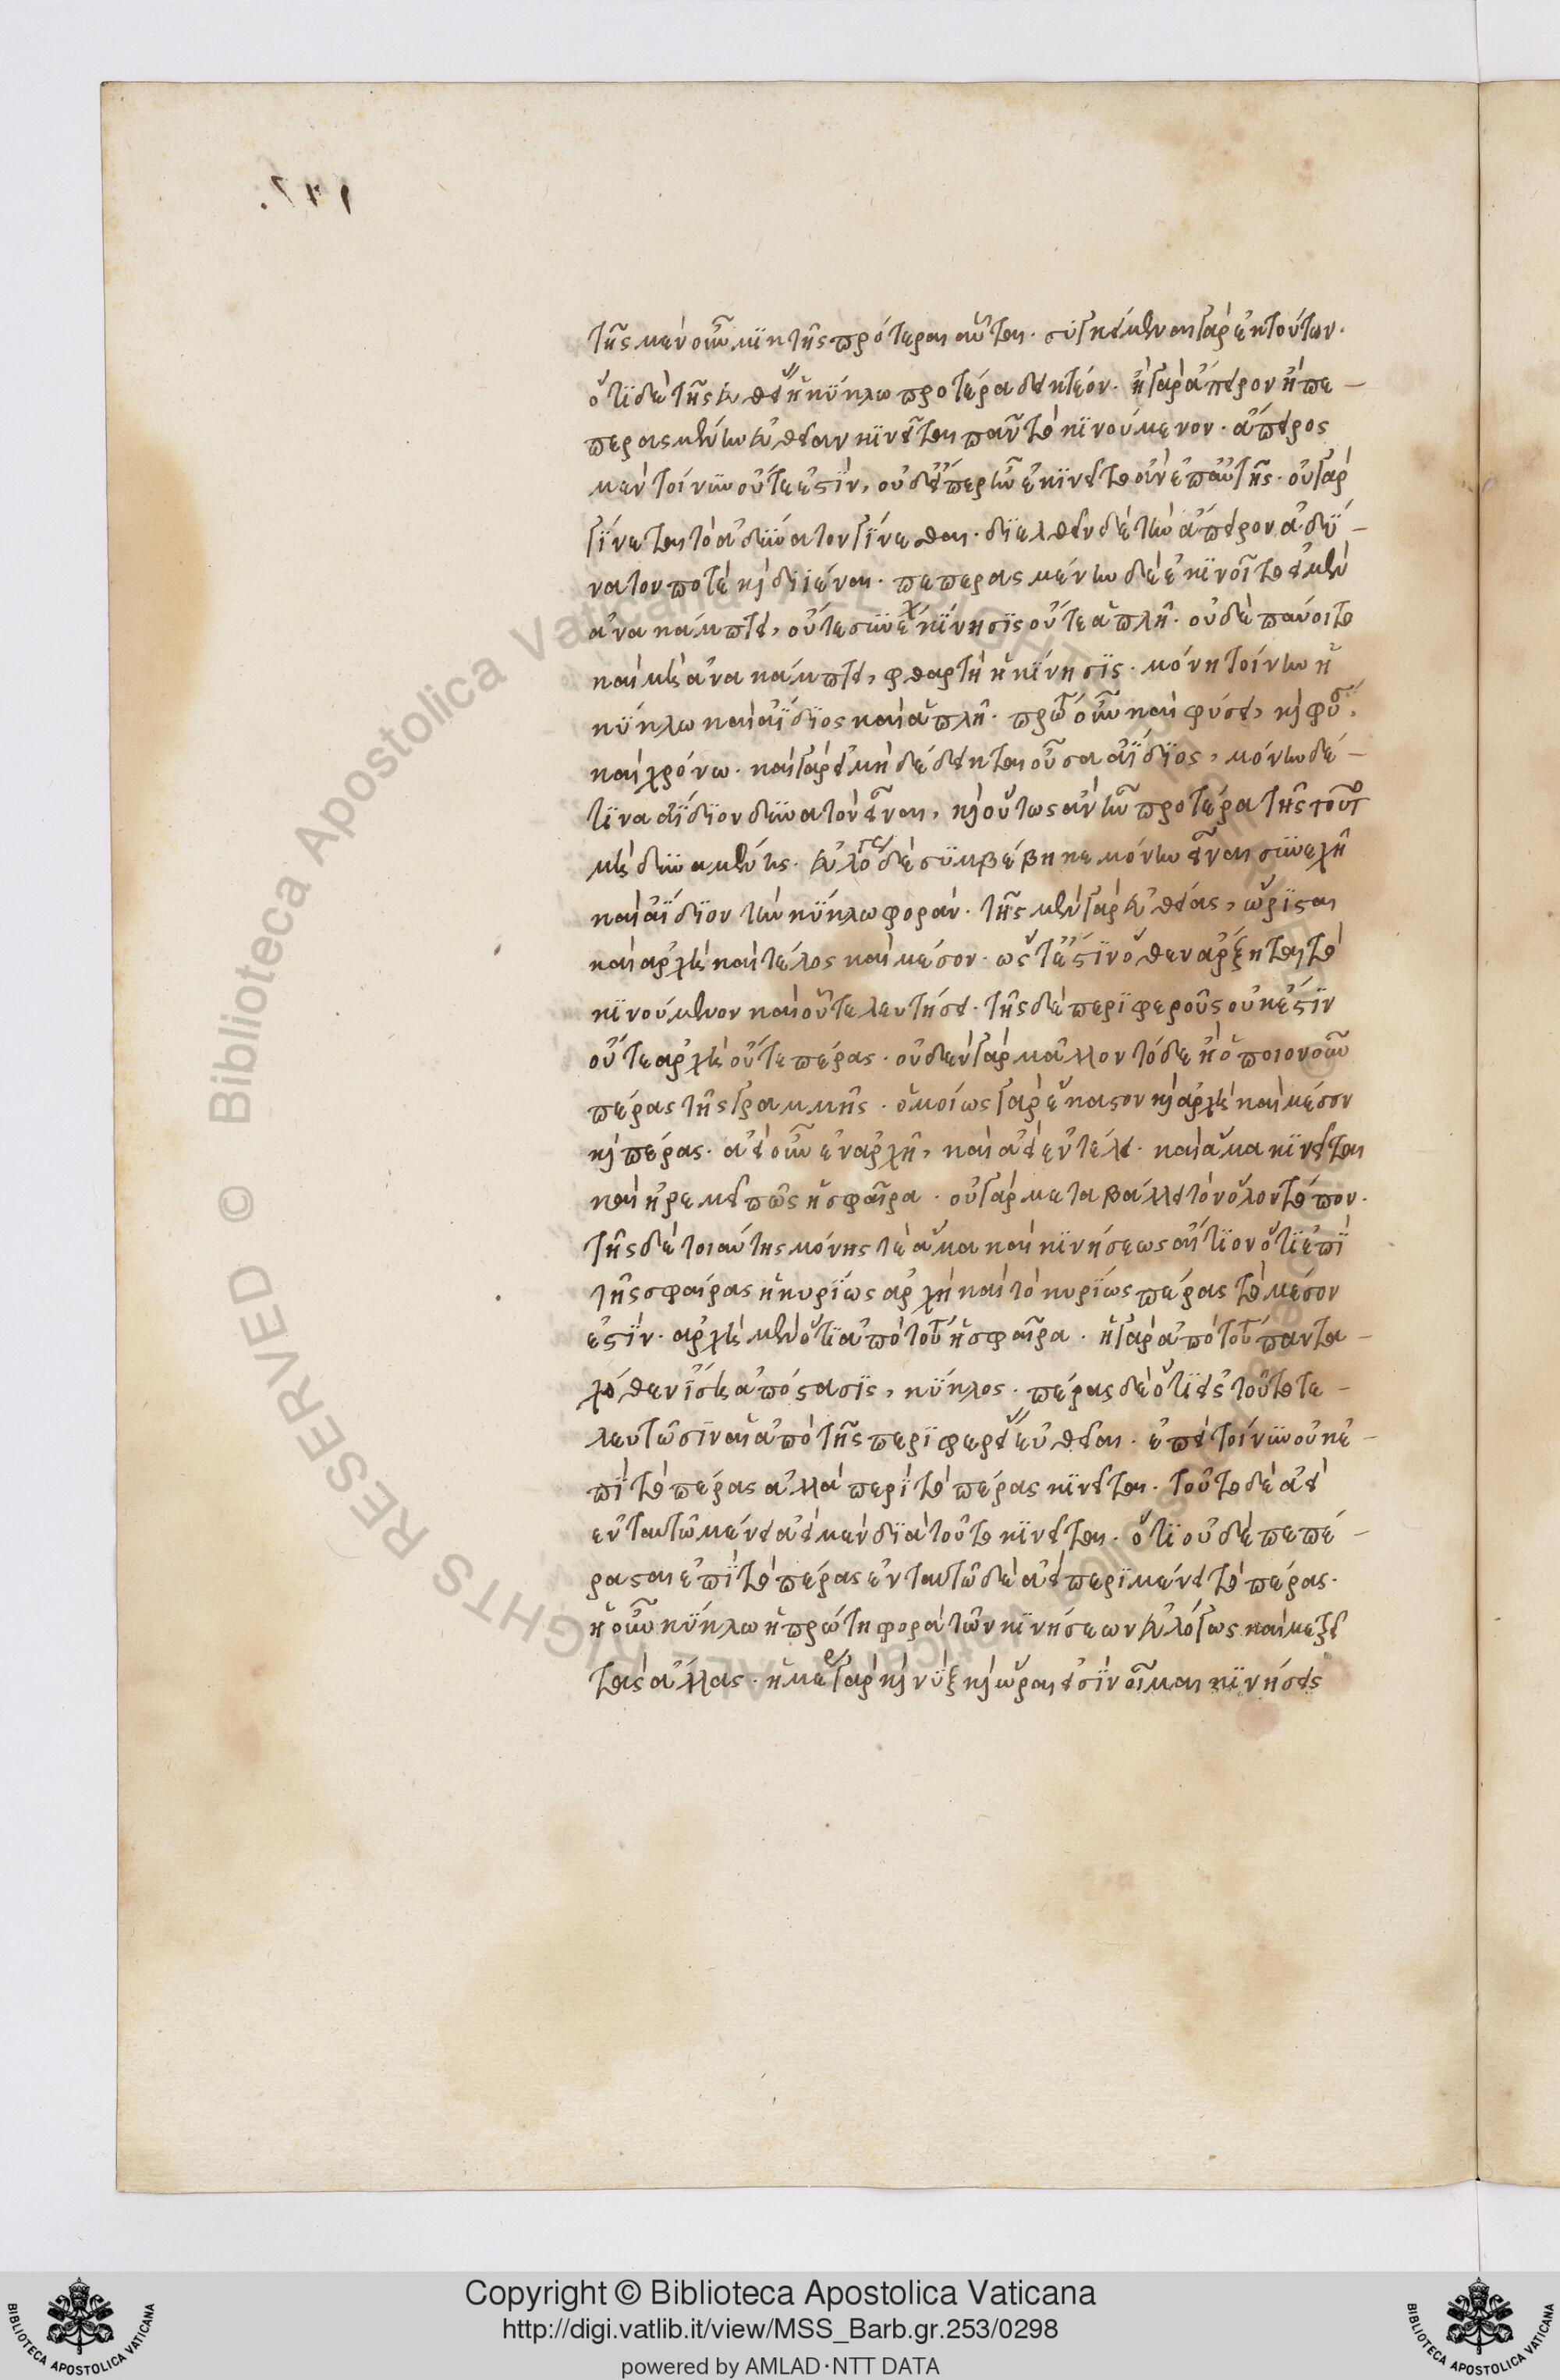 τῆς μὲν οὖν μικτῆς προτέρα αὕτη. σύγκειται γὰρ ἐκ τούτων.
ὅτι δὲ τῆς εὐθείας ἡ κύκλῳ προτέρα δεικτέον. ἢ γὰρ ἄπειρον ἢ πε-
περασμένην εὐθεῖαν κινεῖται πᾶν τὸ κινούμενον. ἄπειρος
μὲν τοίνυν οὔτε ἐστὶν, οὐδ' εἴπερ ἦν ἐκινεῖτο ἂν ἐπ' αὐτῆς. οὐ γὰρ
γίνεται τὸ ἀδύνατον γίνεσθαι. διελθεῖν δὲ τὴν ἄπειρον ἀδύ-
νατον ποτὲ καὶ διιέναι. πεπερασμένην δὲ ἐκινοῖτο εἰ μὲν
ἀνακάμπτει, οὔτε συνεχὴς κίνησις οὔτε ἁπλῆ. οὐδὲ παύοιτο
καὶ μὴ ἀνακάμπτει, φθαρτὴ ἡ κίνησις. μόνη τοίνυν ἡ
κύκλῳ καὶ ἀΐδιος καὶ ἁπλῆ. πρώτη οὖν καὶ φύσει, καὶ
καὶ χρόνῳ. καὶ γὰρ εἰ μὴ δέδεικται οὖσα ἀΐδιος, μόνην δέ-
τινα ἀΐδιον δυνατὸν εἶναι, καὶ οὕτως ἂν ἦν προτέρα τῆς τοῦτο
μὴ δυναμένης. εὐλόγως δὲ συμβέβηκε μόνην εἶναι συνεχῆ
καὶ ἀΐδιον τὴν κύκλῳ φοράν. τῆς μὲν γὰρ εὐθείας, ὥρισται
καὶ ἀρχὴ καὶ τέλος καὶ μέσον. ὥστ' ἔστιν ὅθεν ἄρξηται τὸ
κινούμενον καὶ οὗ τελευτήσει. τῆς δὲ περιφεροῦς οὐκ ἔστιν
οὔτε ἀρχὴ οὔτε πέρας. οὐδὲν γὰρ μᾶλλον τόδε ἢ ὁποιονοῦν
πέρας τῆς γραμμῆς. ὁμοίως γὰρ ἕκαστον καὶ ἀρχὴ καὶ μέσον
καὶ πέρας. ἀεὶ οὖν ἐν ἀρχῇ, καὶ ἀεὶ ἐν τέλει. καὶ ἅμα κινεῖται
καὶ ἠρεμεῖ πῶς ἡ σφαῖρα. οὐ γὰρ μεταβάλλει τὸν ὅλον τόπον.
τῆς δὲ τοιαύτης μόνης τὲ ἅμα καὶ κινήσεως αἴτιον ὅτι ἐπὶ
τῆς σφαίρας ἡ κυρίως ἀρχὴ καὶ τὸ κυρίως πέρας τὸ μέσον
ἐστίν. ἀρχὴ μὲν ὅτι ἀπὸ τούτου ἡ σφαῖρα. ἡ γὰρ ἀπὸ τούτου παντα-
χόθεν ἴση ἀπόστασις, κύκλος. πέρας δὲ ὅτι εἰς τοῦτο τε-
λευτῶσιν αἱ ἀπὸ τῆς περιφερείας εὐθεῖαι. ἐπεὶ τοίνυν οὐκ ἐ-
πὶ τὸ πέρας ἀλλὰ περὶ τὸ πέρας κινεῖται. τοῦτο δὲ ἀεὶ
ἐν ταυτῷ μένει ἀεὶ μὲν διὰ τοῦτο κινεῖται. ὅτι οὐδὲ πεπέ-
ρασται ἐπὶ τὸ πέρας ἐν ταυτῷ δὲ ἀεὶ περιμένει τὸ πέρας.
ἡ οὖν κύκλῳ ἡ πρώτη φορὰ τῶν κινήσεων εὐλόγως καὶ μετρεῖ
τὰς ἄλλας. ἡμέρα γὰρ καὶ νὺξ καὶ ὧραι εἰσὶν οἶμαι κινήσεις
Copyright © Biblioteca Apostolica Vaticana
http://digi.vatlib.it/view/MSS_Barb.gr.253/0298
powered by AMLAD·NTT DATA